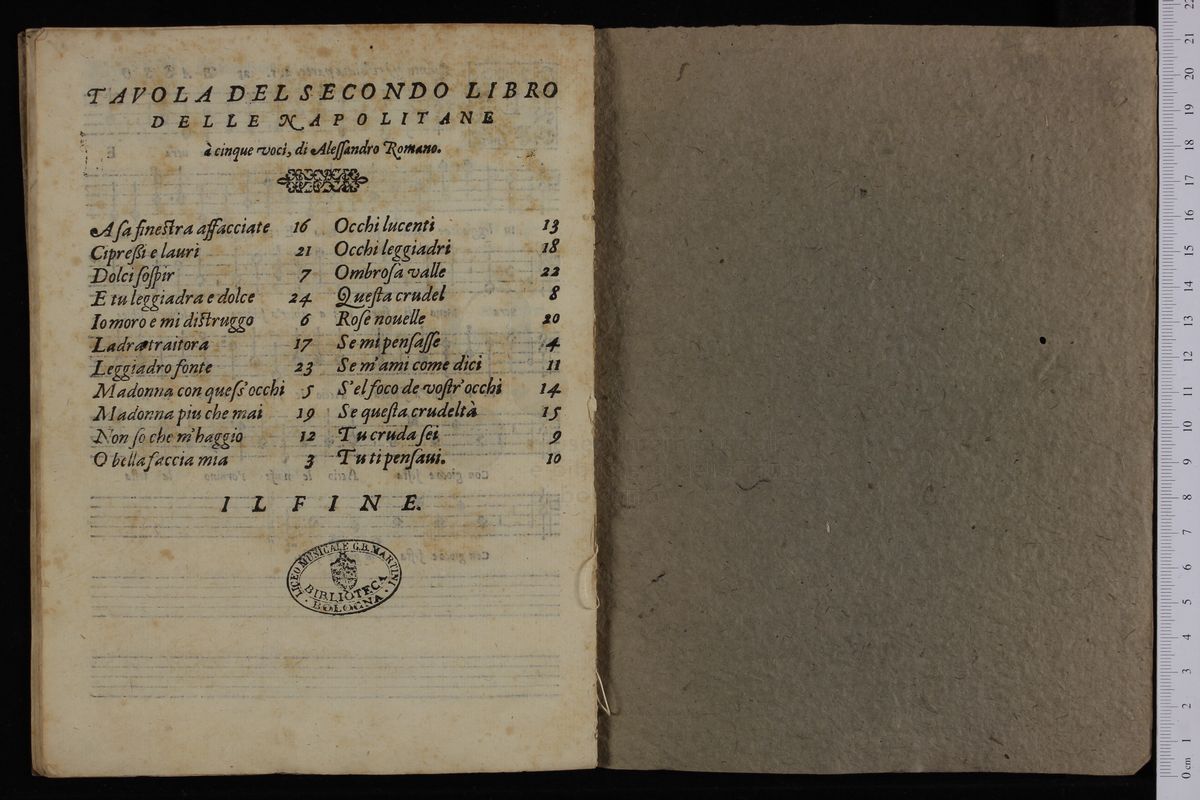 TAVOLA DEL SECONDO LIBRO
DELLE NAPOLITANE
à cinque voci, di Alessandro Romano.
A sa finestra affacciate 16
Cipressi e lauri 21
Dolci sospir 7
E tu leggiadra e dolce 24
Io moro e mi distruggo 6
Ladra traitora 17
Leggiadro fonte 23
Madonna con quess'occhi 5
Madonna piu che mai 19
Non so che m'haggio 12
O bella faccia mia 3
Occhi lucenti 13
Occhi leggiadri 18
Ombrosa valle 22
Questa crudel 8
Rose nouelle 20
Se mi pensasse 4
Se m'ami come dici 11
S'el foco de vostr'occhi 14
Se questa crudeltà 15
Tu cruda sei 9
Tu ti pensaui. 10
IL FINE.
LICEO MUSICALE G.B. MARTINI
BIBLIOTECA
· BOLOGNA ·
0 cm 1 2 3 4 5 6 7 8 9 10 11 12 13 14 15 16 17 18 19 20 21 22